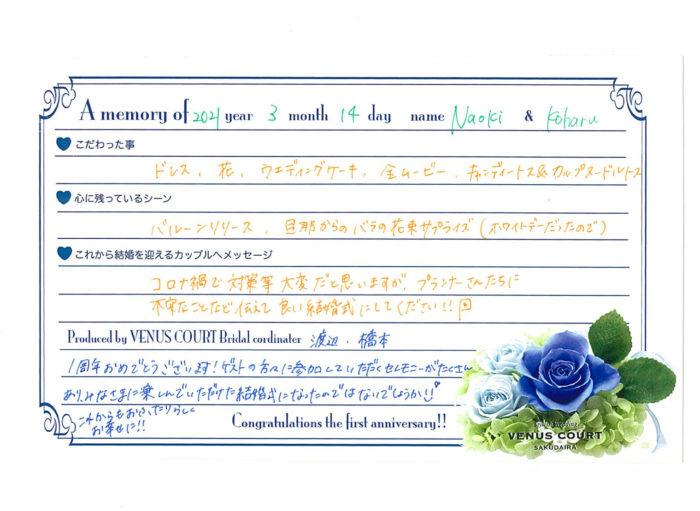 A memory of 2021 year 3 month 14 day name Naoki & Koharu
こだわった事
ドレス、花、ウエディングケーキ、全ムービー、キャンディートス&カップヌードルトース
心に残っているシーン
バルーンリリース、旦那からのバラの花束サプライズ(ホワイトデーだったので)
これから結婚を迎えるカップルへメッセージ
コロナ禍で対策等大変だと思いますが、プランナーさんたちに
不安なことなど伝えて良い結婚式にしてください!!
Produced by VENUS COURT Bridal cordinater 渡辺・橋本
1周年おめでとうございます!ゲストの方々に参加していただくセレモニーがたくさん
あり、みなさまに楽しんでいただけた結婚式になったのではないでしょうか!!
これからもおふたりらしく
お幸せに!!
Congratulations the first anniversary!!
VENUS COURT
SAKUDAIRA